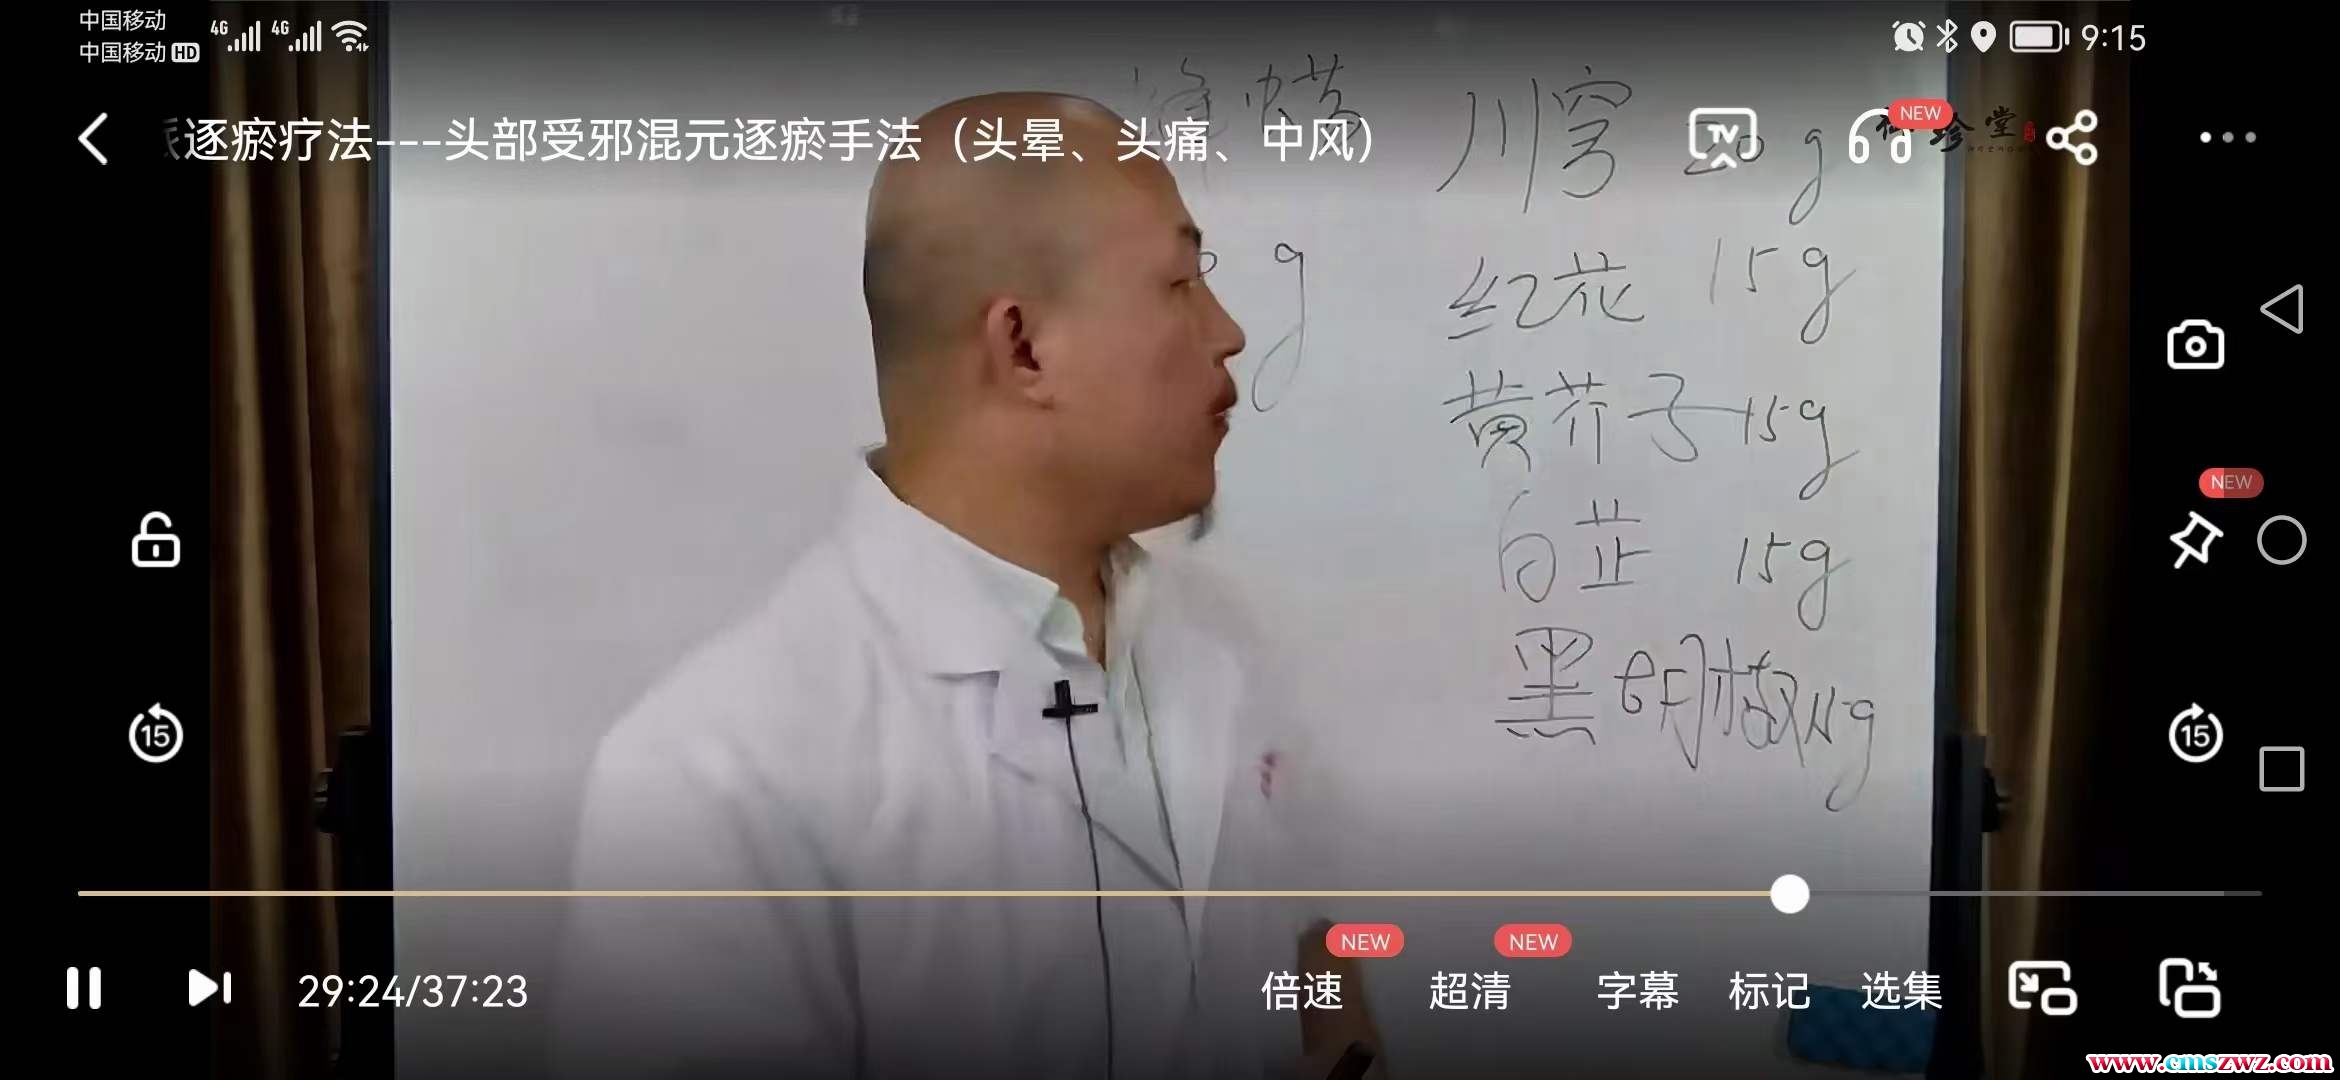 中国移动
中国移动 HD
4G 4G
9:15
逐瘀疗法---头部受邪混元逐瘀手法（头晕、头痛、中风）
TV
NEW
堂
蜂蜡
g
川芎 20g
红花 15g
黄芥子 15g
白芷 15g
黑胡椒 15g
NEW
15
15
29:24/37:23
NEW
NEW
倍速
超清
字幕
标记
选集
www.cmszwz.com